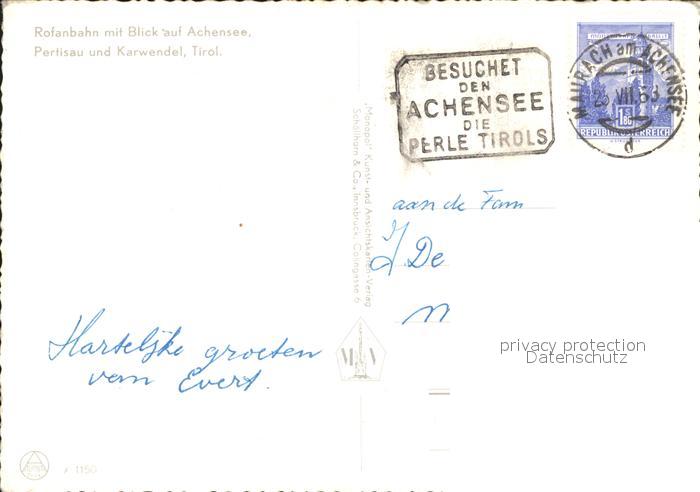 Rofanbahn mit Blick auf Achensee,
Pertisau und Karwendel, Tirol.
BESUCHET
DEN
ACHENSEE
DIE
PERLE TIROLS
MAURACH am ACHENSEE
REPUBLIK ÖSTERREICH
"Monopol" Kunst- und Ansichtskarten-Verlag
Schöllhorn & Co., Innsbruck, Colingasse 6
aan de Fam
J De
Hartelijke groeten
van Evert.
privacy protection
Datenschutz
1150